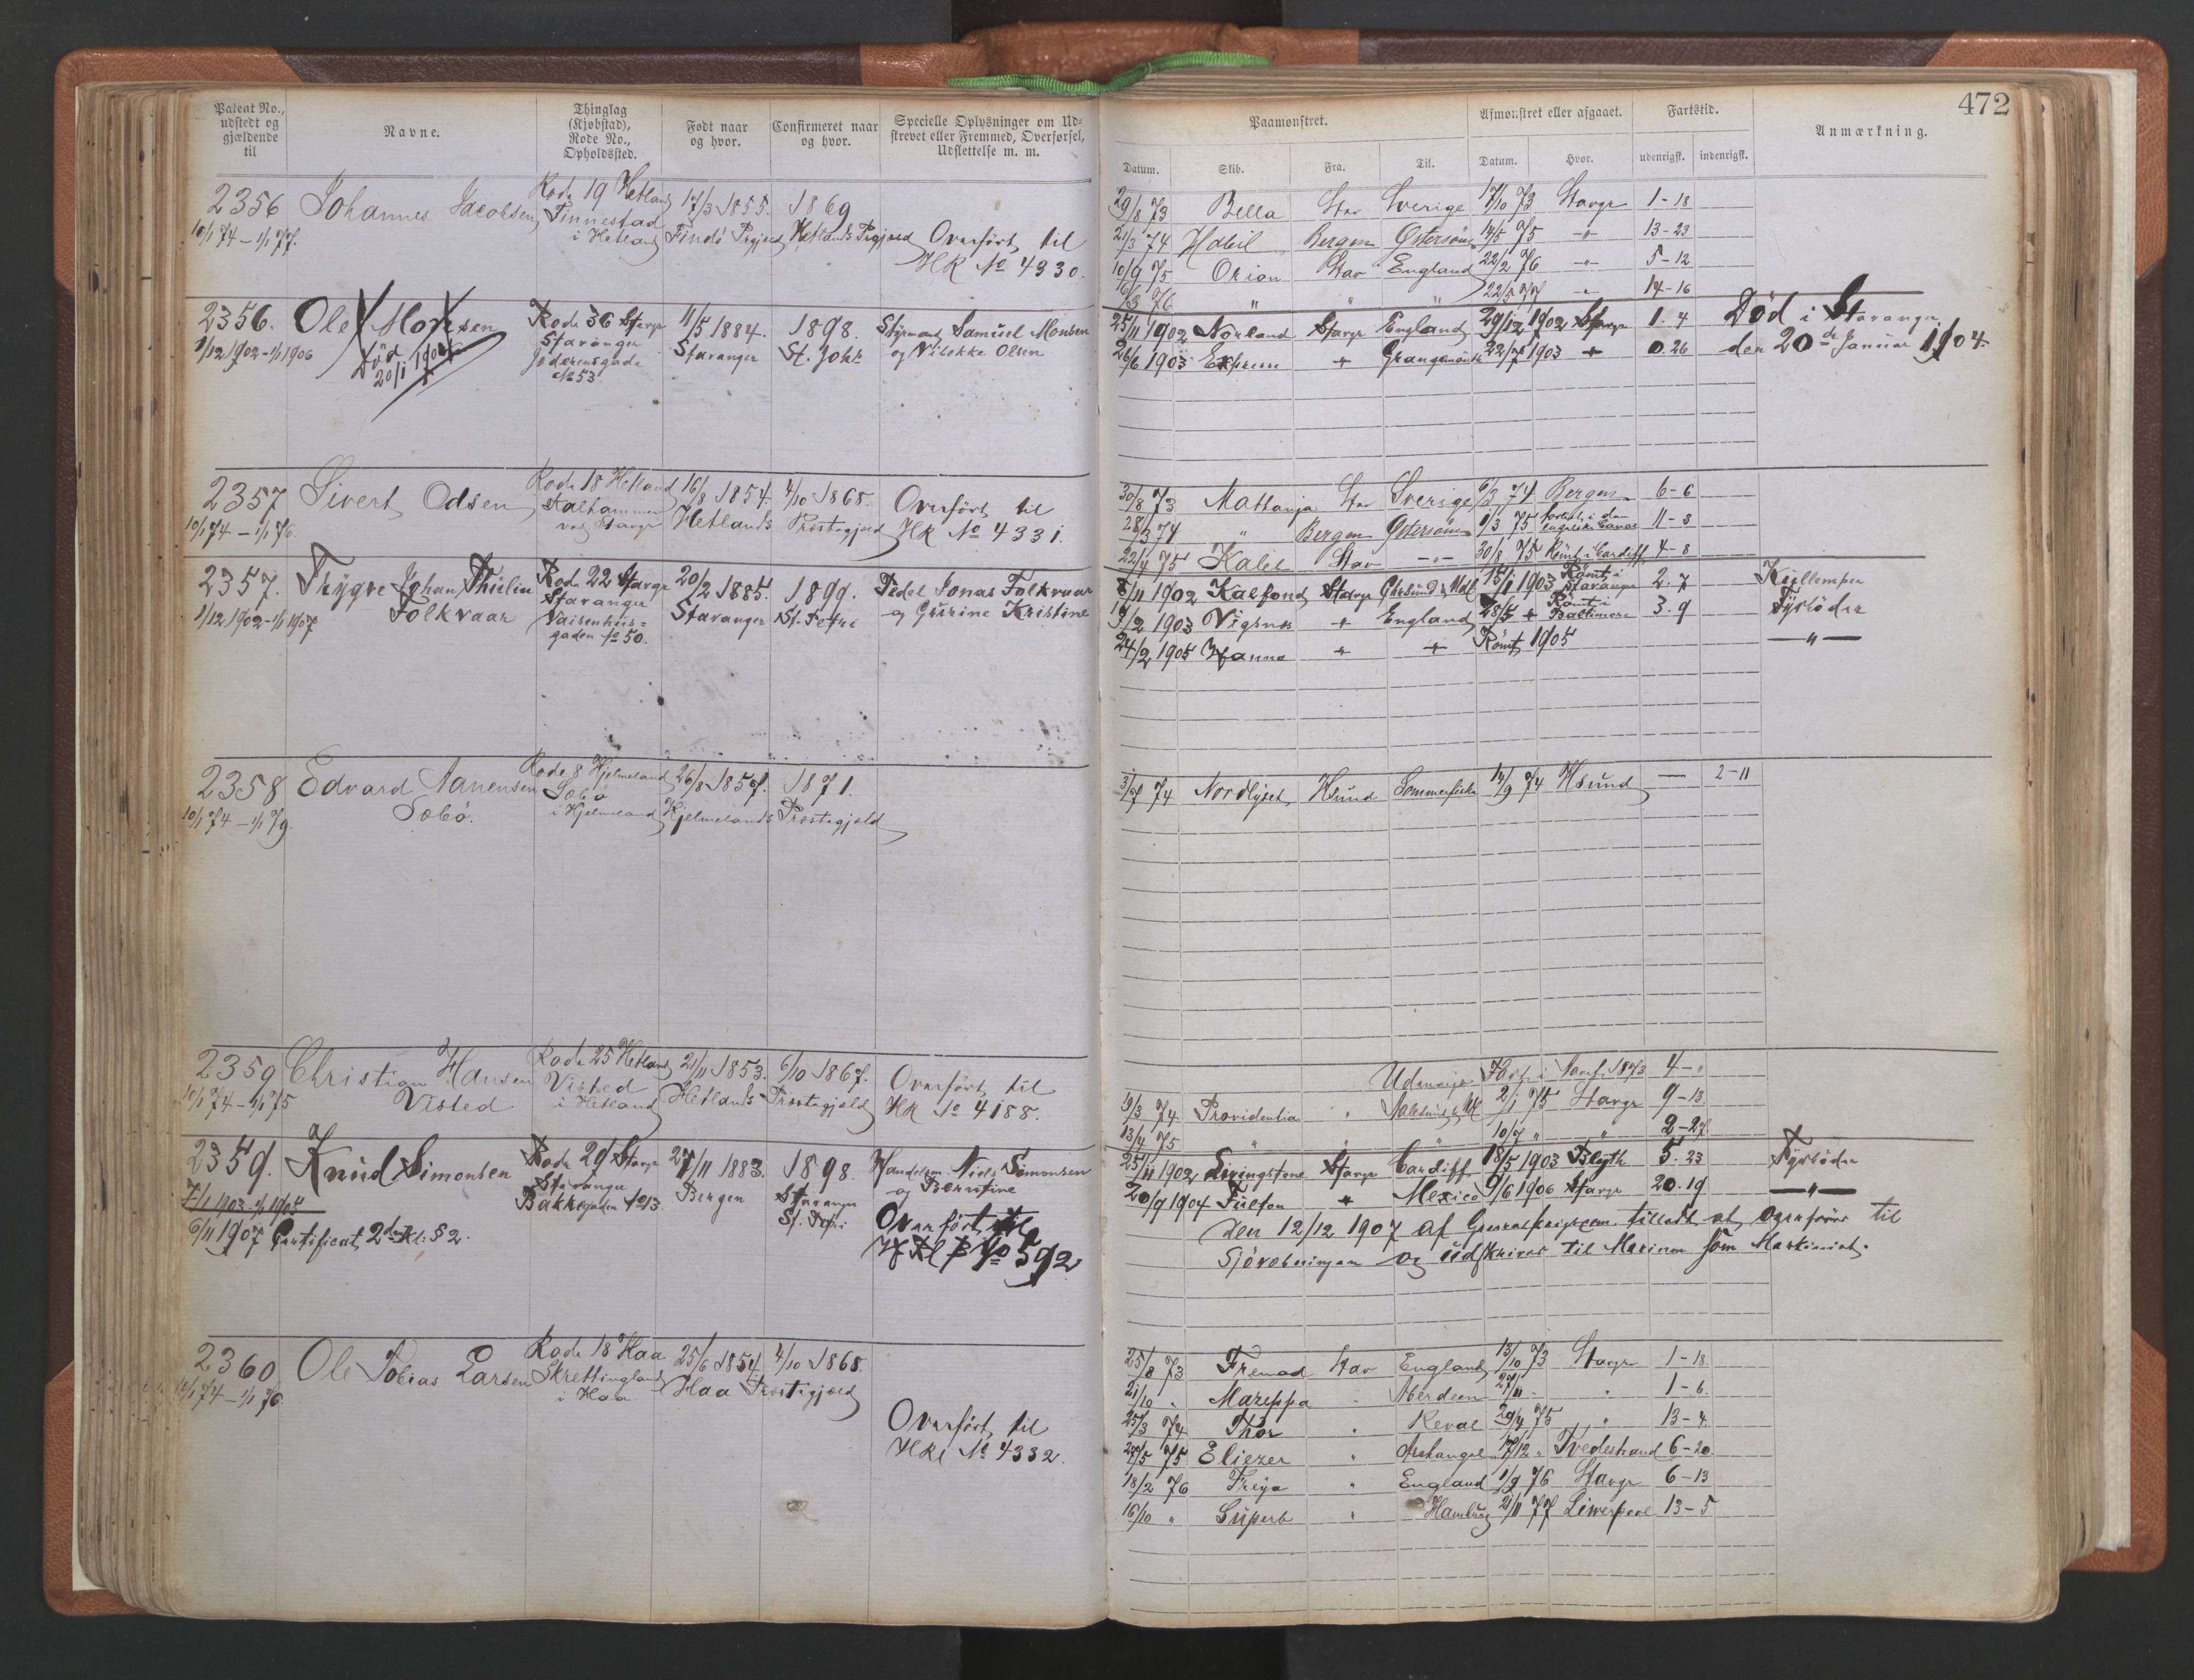 472
Patent No., udstedt og gjældende til
Navne.
Thinglag (Kjøbstad), Rode No., Opholdssted.
Født naar og hvor.
Confirmeret naar og hvor.
Specielle Oplysninger om Udskrevet eller Fremmed, Overførsel, Udslettelse m. m.
Paamønstret.
Afmønstret eller afgaaet.
Fartstid.
Anmærkning.
Datum. Skib. Fra. Til. Datum. Hvor. udenrigsk. indenrigsk.
2356 Johannes Jacobsen Rode 19 Hetland 17/3 1855. 1869
10/1 74 – 1/1 77. Tinnestad i Hetland Findö Prgjeld Hetlands Prgjeld Overført til
HR No 4330.
29/8 73 Bella Stav Sverige 17/10 73 Stavgr 1-18
21/3 74 Habil Bergen Østersøen 14/5 75 -"- 13-23
10/9 75 Orion Stav England 22/2 76 -"- 5-12
16/3 76 " " " 22/5 77 " 14-16
2356. Ole Monsen Rode 36 Stavgr 11/5 1884. 1898. Styrmand Samuel Monsen
1/12 1902-1/1 1906 Stavanger Stavanger St. Joh: og Vibekke Olsen
Död 20/1 1904 Jæderensgade No 53.
25/11 1902 Norland Stavgr England 29/12 1902 Stavgr 1. 4 Död i Stavanger
26/6 1903 Express + Grangemouth 22/7 1903 + 0. 26 den 20de Januar 1904.
2357 Sivert Odsen Rode 18 Hetland 16/8 1854. 4/10 1868. Overført til
10/1 74 – 1/1 76. Stalhammer ved Stavgr Hetlands Præstegjeld HR No 4331.
30/8 73 Mattanja Stav Sverige 6/3 74 Bergen 6-6
28/3 74 " Bergen Østersøen 1/3 75 forlist i den engelske Canal 11-3
22/4 75 Kaleb Stav -"- 30/8 75 Rømt i Cardiff 4-8
2357. Trygve Johan Thulin Rode 22 Stavgr 20/2 1885. 1899. Pedel Jonas Folkvaar
1/12 1902-1/1 1907 Folkvaar Stavanger Stavanger St. Petri og Gurine Kristine
Vaisenhusgaden No 50.
8/11 1902 Kalfond Stavgr 15/1 1903 Rømt i Stavanger 2. 7 Kullemper
19/2 1903 Vigsnes + England 28/5 + Rømt i Baltimore 3. 9 Fyrböder
24/2 1905 Hanna + + Rømt 1905 —"—
2358 Edvard Aanensen Rode 8 Hjelmeland 26/8 1857. 1871.
10/1 74 – 1/1 79. Sobö. Sobö i Hjelmeland Hjelmelands Præstegjeld
3/7 74 Nordlyset Hsund Sommerfiske 14/9 74 Hsund — 2-11
2359 Christian Hansen Rode 25 Hetland 21/11 1853. 6/10 1867. Overført til
10/1 74 – 1/1 75 Visted Visted i Hetland Hetlands Præstegjeld HR No 4188.
Udenrigs Fart i 1873 4-"
19/3 74 Providentia " 2/1 75 Stavgr 9-13.
13/4 75 " " " 10/7 " " 2-27.
2359. Knud Simonsen Rode 29 Stavgr 27/11 1883. 1898. Handelsm. Niels Simonsen
7/1 1903-1/1 1905 Stavanger Bergen Stavanger og Berntine
6/11 1907 Certificat 2den Kl: § 2. Bakkegaden No 13 St. Petri Overført til
No 592
25/11 1902 Livingstone Stavgr Cardiff 18/5 1903 Blyth 5. 23 Fyrböder
20/9 1904 Fulton + Mexico 9/6 1906 Stavgr 20. 19 —"—
Den 12/12 1907 af tilladt at overføres til
Sjöræbningen og udskrives til Marinen som Maskinist.
2360 Ole Tobias Larsen Rode 18 Haa 25/6 1854 4/10 1868.
10/1 74 – 1/1 76 Skrettingland i Haa Haa Præstegjeld
Overført til
HR No 4332.
25/8 73 Fremad Stav England 13/10 73 Stavgr 1-18.
21/10 " Mazeppa " Aberdeen 27/11 " " 1-6.
25/3 74 Thor " Reval 29/4 75 " 13-4.
27/5 75 Eliezer " Archangel 17/12 " Tvedestrand 6-20.
18/2 76 Freya " England 1/9 76 Stavgr 6-13
16/10 " Superb " Hamburg 21/11 77 Liverpool 13-5